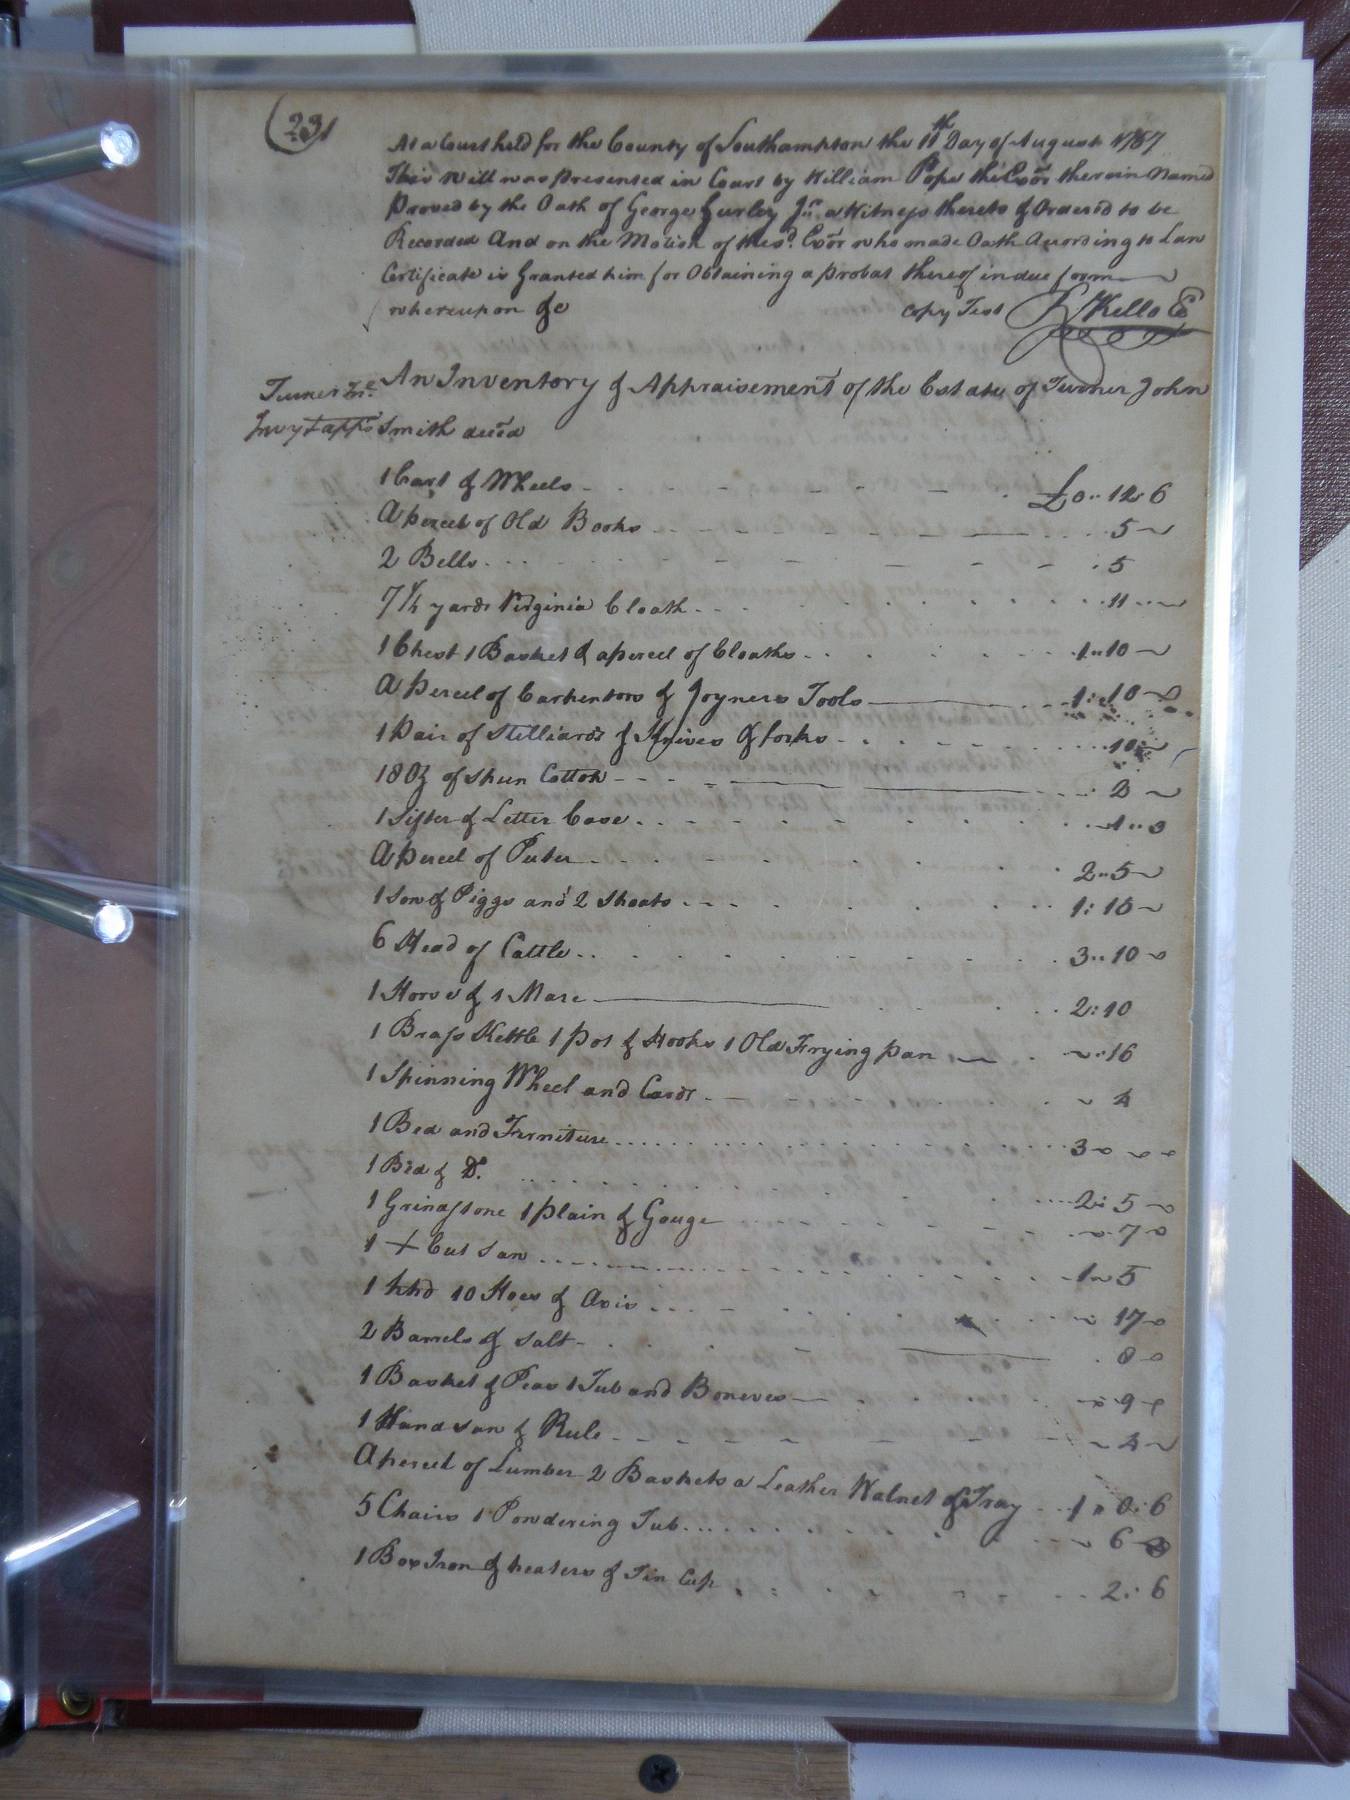 231
At a Court held for the County of Southampton the 11th Day of August 1757
This Will was Presented in Court by William Pope the Exōr therein Named
Proved by the Oath of George Gurley Jr. a Witness thereto & Ordered to be
Recorded And on the Motion of the sd. Exōr who made Oath Acording to Law
Certificate is Granted him for Obtaining a probat thereof in due form
whereupon &c copy Test R Kello
An Inventory & Appraisement of the Estate of Turner John
Smith decd
Invy & apps
1 Cart & Wheels £0..12.6
A percel of Old Books 5
2 Bells 5
7 1/4 yards Virginia Cloath 11
1 Chest 1 Basket & a percel of Cloaths 1..10
A percel of Carpentors & Joyners Tools 1:10
1 Pair of Stilliards & Knives & forks 10
18 Oz of spun Cotton 2
1 Sifter & Letter Case 1..0
A percel of Puter 2..5
1 Sow & Piggs and 2 Shoats 1:15
6 Head of Cattle 3..10
1 Horse & 1 Mare 2:10
1 Brass Kettle 1 pot & Hooks 1 Old Frying pan 16
1 Spinning Wheel and Cards 4
1 Bed and Furniture 3
1 Bed & Do. 2:5
1 Grindstone 1 plain & Gouge 7
1 + Cut Saw 1 5
1 hhd 10 Hoes & Axis 17
2 Barrels & Salt 8
1 Basket & Peas 1 Tub and 9
1 Hand saw & Rule 4
A percel of Lumber 2 Baskets a Leather & Tray 1 0:6
5 Chairs 1 Powdering Tub 6
1 Box Iron & heaters & Tin Cup 2:6